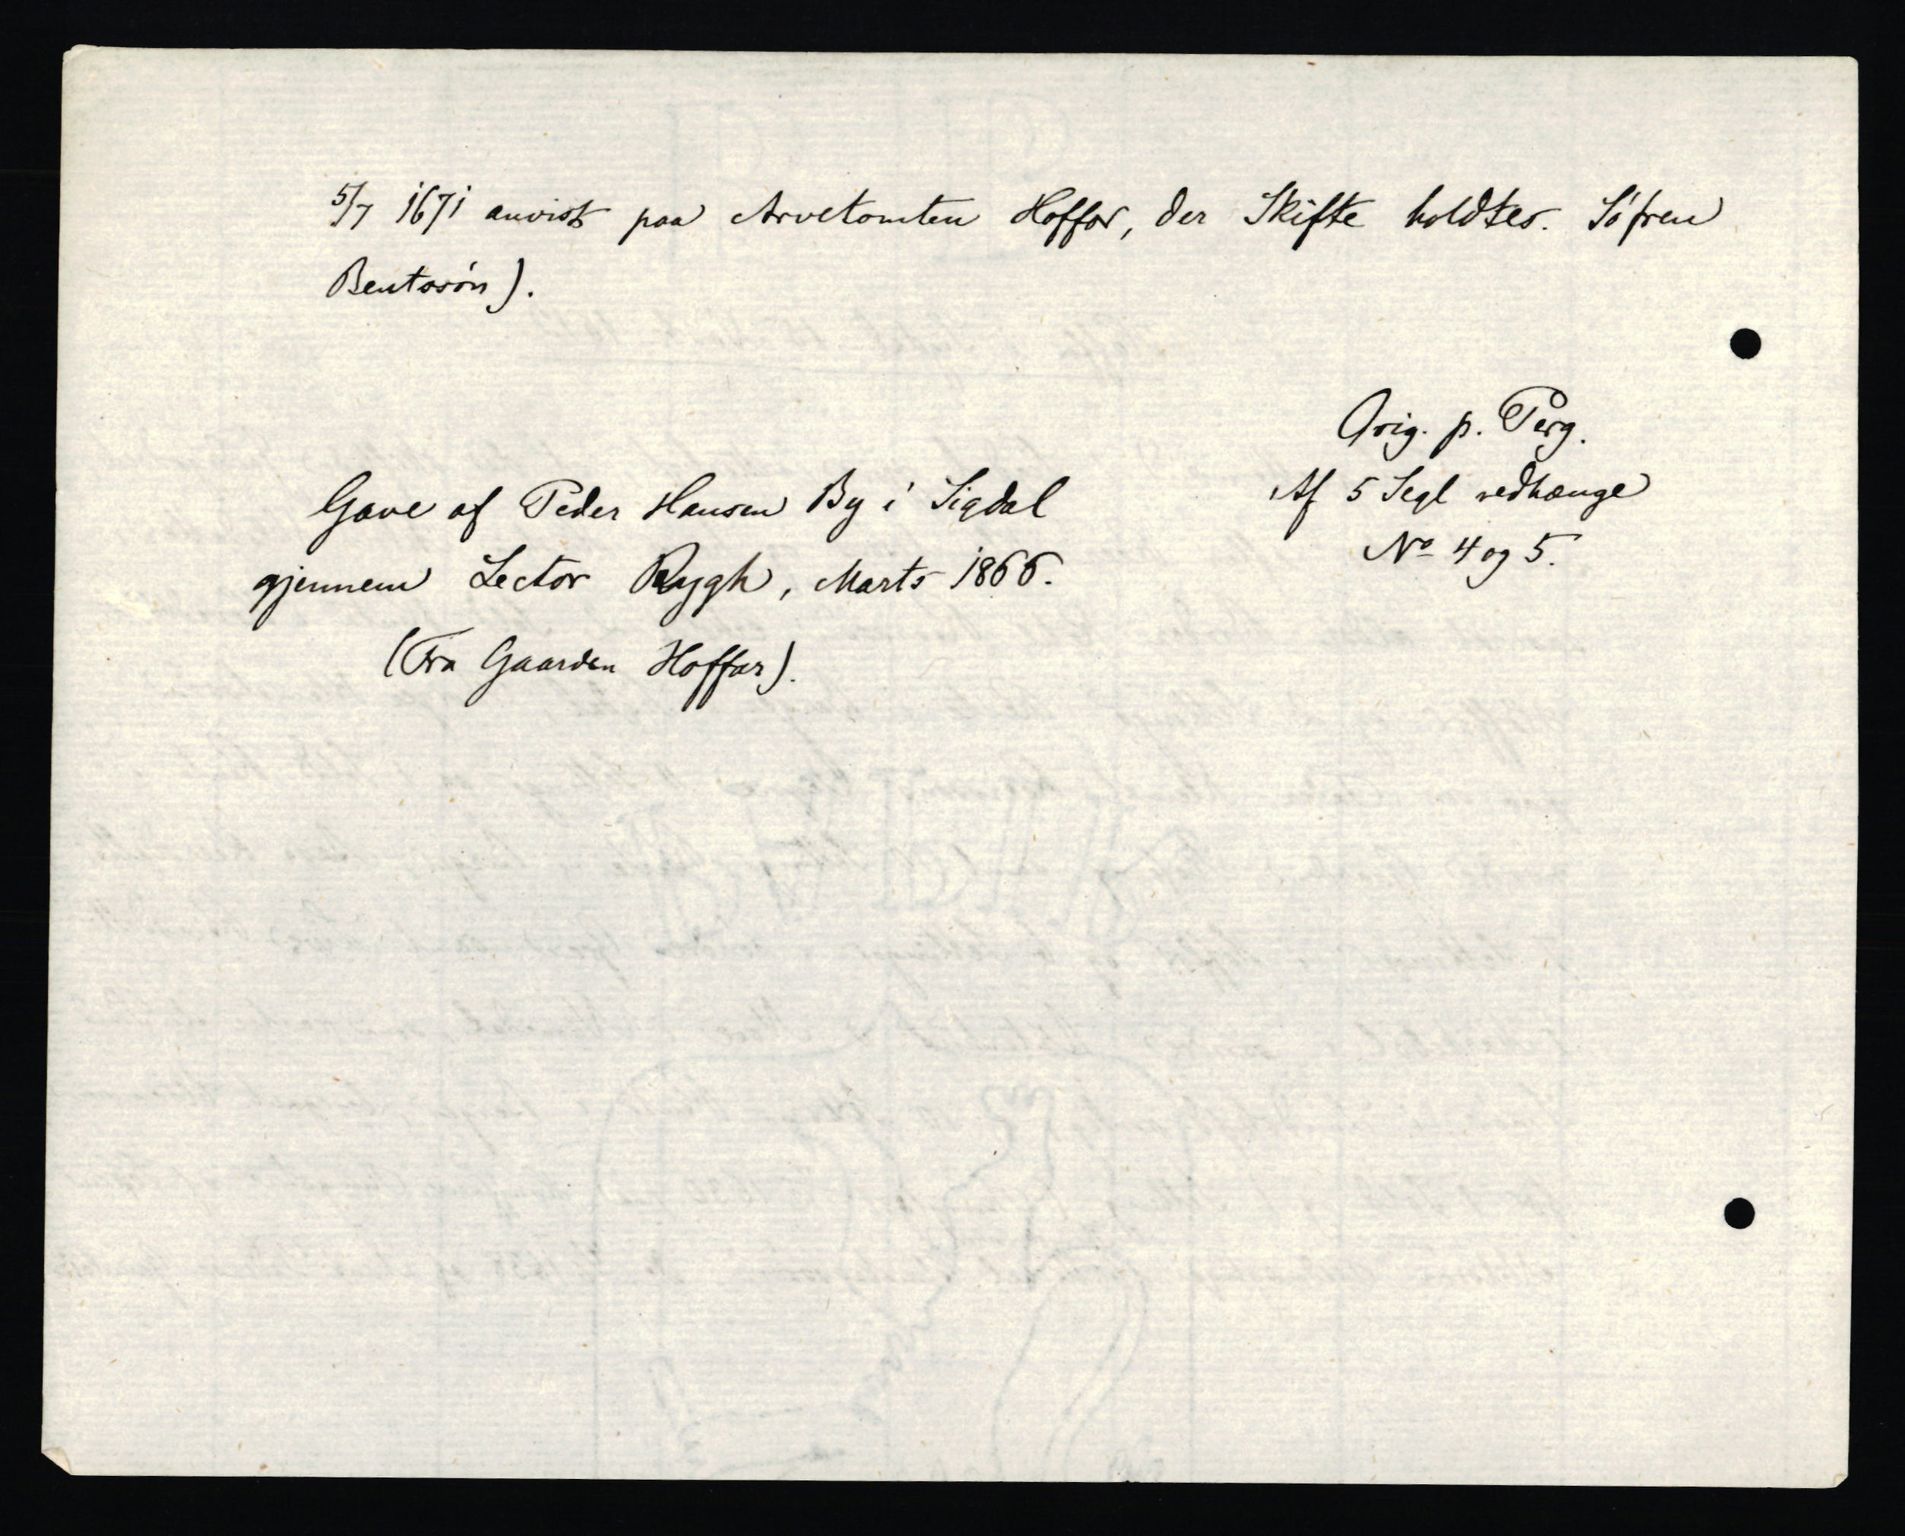 5/7 1671 anvist paa Arvetomten Hoffar, der Skifte holdtes. Söfren
Bentssön).
Orig. p. Perg.
Af 5 Segl vedhænge
No 4 og 5.
Gave af Peder Hansen By i Sigdal
gjennem Lector Rygh, Marts 1866.
(Fra Gaarden Hoffar).